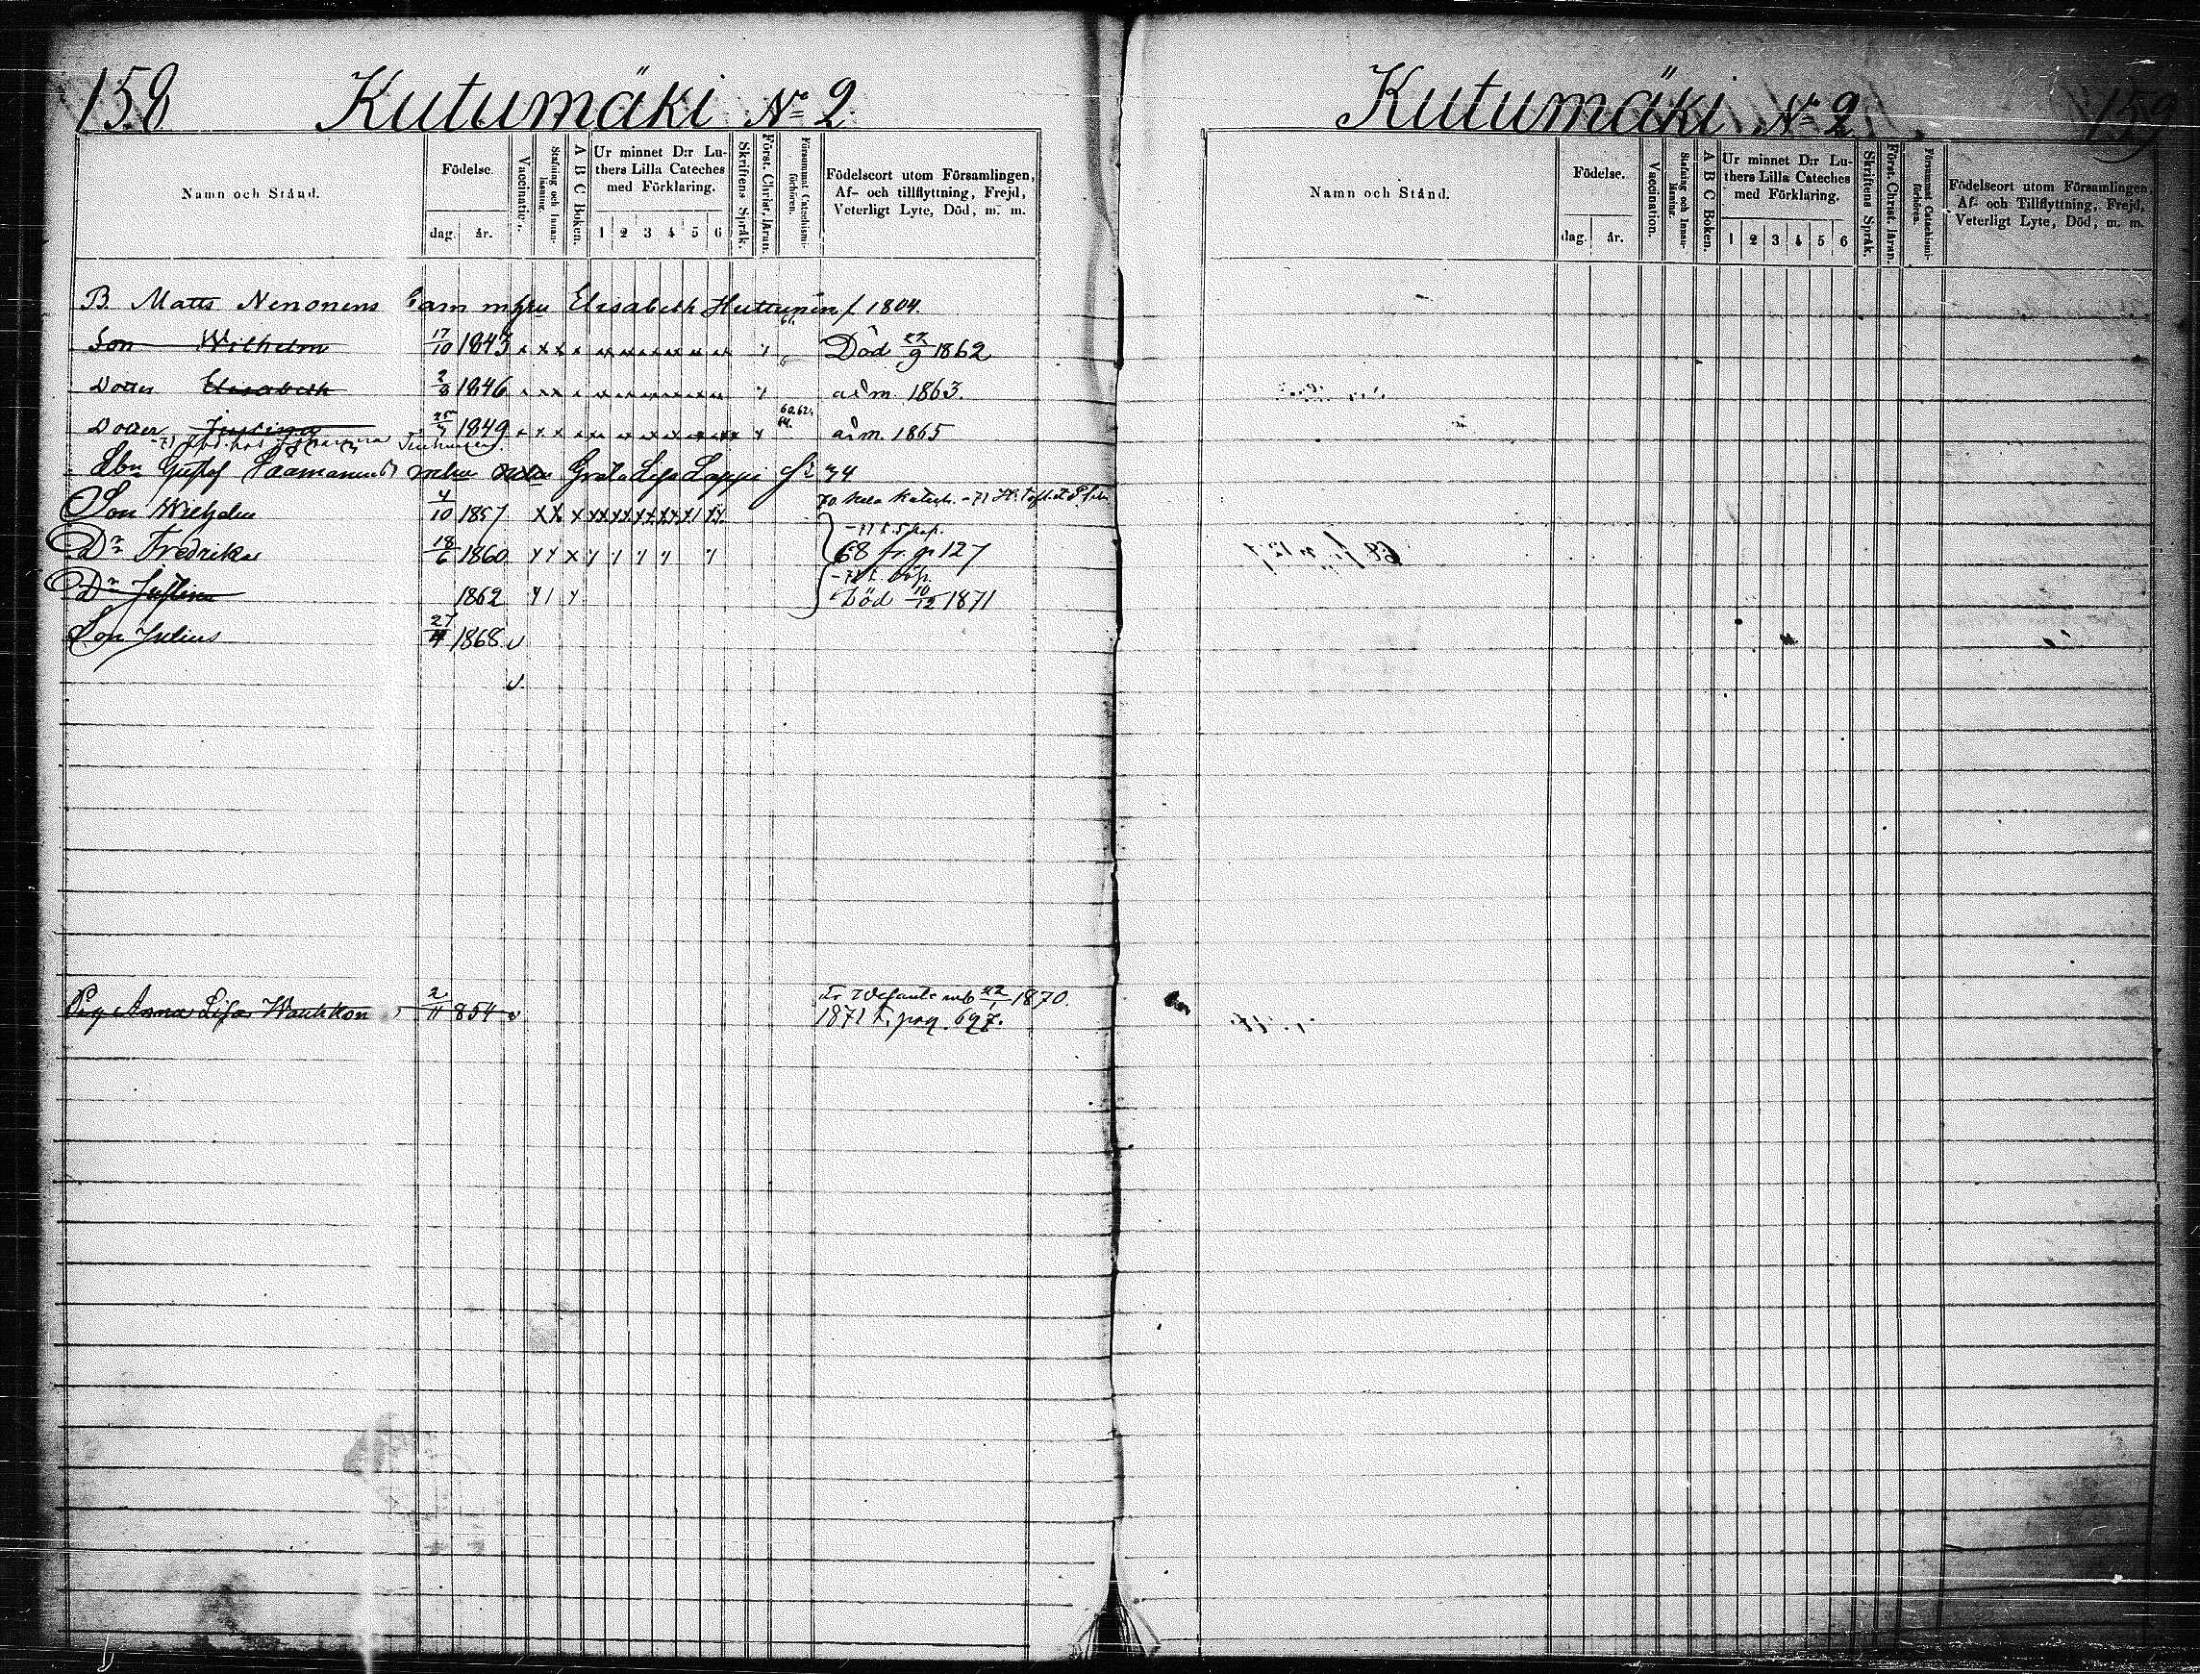 158 Kutumäki No 2
Namn och Stånd.
Födelse.
dag. år.
Vaccination.
Stafning och Innanläsning.
A B C Boken.
Ur minnet D:r Lu-
thers Lilla Cateches
med Förklaring.
1 2 3 4 5 6
Skriftens Språk.
Först. Christ. läran.
Försummat Catechismi-
förhören.
Födelseort utom Församlingen,
Af- och tillflyttning, Frejd,
Veterligt Lyte, Död, m. m.
B. Matts Nenonens barn m hru Elisabeth Huttunen f. 1804.
Son Wilhelm 17/10 1843 Död 22/9 1862
Dotter Elisabeth 2/8 1846 adm. 1863.
Dotter 1849 60.62. 64. adm. 1865
Gustaf Lappi 34
Son Wilhelm 4/10 1857
Dr Fredrika 18/6 1860 68 fr. p 127
Dr Justina 1862 Död 10/12 1871
Son Julius 27/4 1868
Pig Anna Lisa 2/11 854 22/1 1870.
1871 t. pag. 697.
Kutumäki No 2 159
Namn och Stånd.
Födelse.
dag. år.
Vaccination.
Stafning och Innan-
läsning.
A B C Boken.
Ur minnet D:r Lu-
thers Lilla Cateches
med Förklaring.
1 2 3 4 5 6
Skriftens Språk.
Först. Christ. läran.
Försummat Catechismi-
förhören.
Födelseort utom Församlingen,
Af- och Tillflyttning, Frejd,
Veterligt Lyte, Död, m. m.